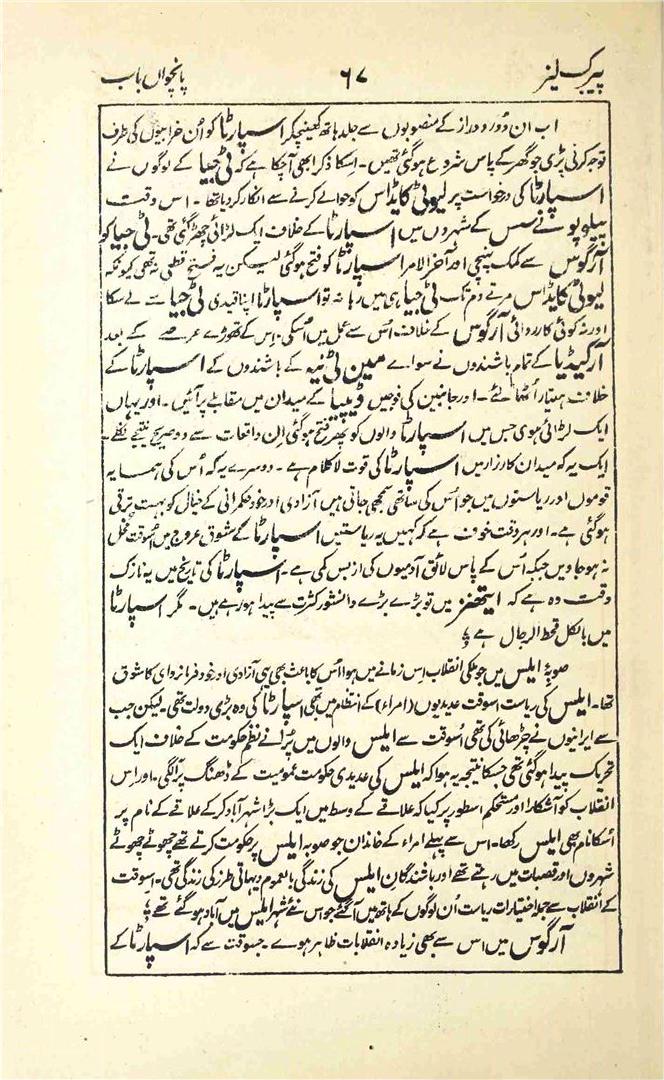 پیرک لیز ۶۷ پانچواں باب
اب ان دور و دراز کے منصوبوں سے جلد ہاتھ کھینچکر اسپارٹا کو اُن خرابیوں کی طرف
توجہ کرنی پڑی جو گھر کے پاس شروع ہوگئی تھیں۔ اسکا ذکر ابھی آچکا ہے کہ ٹی جیا کے لوگوں نے
اسپارٹا کی درخواست پر لیوٹی کایڈاس کو حوالے کرنے سے انکار کردیا تھا۔ اس وقت
پیلوپونے سس کے شہروں میں اسپارٹا کے خلاف ایک لڑائی چھڑ گئی تھی۔ ٹی جیا کو
آرگوس سے کمک پہنچی اور آخر الامر اسپارٹا کو فتح ہوگئی لیکن یہ فتح قطعی نہ تھی کیونکہ
لیوٹی کایڈاس مرتے دم تک ٹی جیا ہی میں رہا نہ تو اسپارٹا اپنا قیدی ٹی جیا سے لے سکا
اور نہ کوئی کارروائی آرگوس کے خلاف اُس سے عمل میں آسکی۔ اِس کے تھوڑے عرصے کے بعد
آرکیڈیا کے تمام باشندوں نے سواے مین ٹی نیہ کے باشندوں کے اسپارٹا کے
خلاف ہتیار اُٹھا لئے۔ اور جانبین کی فوجیں ڈیپیا کے میدان میں مقابلے پر آئیں۔ اور یہاں
ایک لڑائی ہوی جس میں اسپارٹا والوں کو پھر فتح ہوگئی اِن واقعات سے دو صریح نتیجے نکلے۔
ایک یہ کہ میدان کارزار میں اسپارٹا کی قوت لاکلام ہے۔ دوسرے یہ کہ اُس کی ہمسایہ
قوموں اور ریاستوں میں جو اُس کی ساتھی سمجھی جاتی ہیں آزادی اور خود حکمرانی کے خیال کو بہت ترقی
ہوگئی ہے۔ اور ہر وقت خوف ہے کہ کہیں یہ ریاستیں اسپارٹا کے شوق عروج میں اُسوقت مخل
نہ ہو جاویں جبکہ اُس کے پاس لائق آدمیوں کی از بس کمی ہے۔ اسپارٹا کی تاریخ میں یہ نازک
وقت وہ ہے کہ ایتھنز میں تو بڑے بڑے دانشور کثرت سے پیدا ہو رہے ہیں۔ مگر اسپارٹا
میں بالکل قحط الرجال ہے ؞
صوبۂ ایلس میں جو ملکی انقلاب اِس زمانے میں ہوا اُس کا باعث بھی یہی آزادی اور خود فرمانروای کا شوق
تھا۔ ایلس کی ریاست اسوقت عدیدیوں (امراء) کے انتظام میں تھی اسپارٹا کی وہ بڑی دولت تھی۔ لیکن جب
سے ایرانیوں نے چڑھائی کی تھی اُسوقت سے ایلس والوں میں پُرانے نظم حکومت کے خلاف ایک
تحریک پیدا ہوگئی تھی جسکا نتیجہ یہ ہوا کہ ایلس کی عدیدی حکومت عمومیت کے ڈھنگ پر آلگی۔ اور اِس
انقلاب کو آشکارا اور مستحکم اسطور پر کیا کہ علاقے کے وسط میں ایک بڑا شہر آباد کرکے علاقے کے نام پر
اُسکا نام بھی ایلس رکھا۔ اس سے پہلے امراء کے خاندان جو صوبہ ایلس پر حکومت کرتے تھے چھوٹے چھوٹے
شہروں اور قصبات میں رہتے تھے اور باشندگان ایلس کی زندگی بالعموم دیہاتی طرز کی زندگی تھی۔ اسوقت
کے انقلاب سے جو اختیارات ریاست اُن لوگوں کے ہاتھ میں آگئے جو اس نئے شہر ایلس میں آباد ہوگئے تھے ؞
آرگوس میں اس سے بھی زیادہ انقلابات ظاہر ہوے۔ جسوقت سے کہ اسپارٹا کے